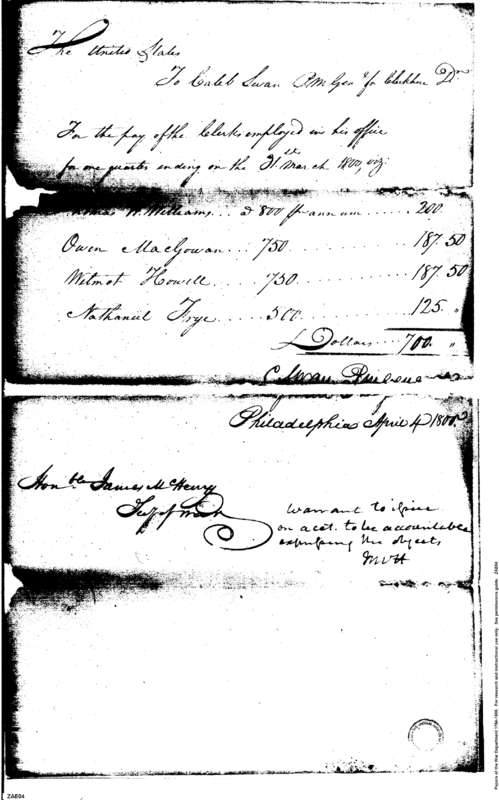 The United States
To Caleb Swan P.M. Gen for Clerkhire Dr
For the pay of the Clerks employed in his office
for one quarter ending on the 31st March 1800, viz:
Thomas W. Williams... a 800 pr annum...... 200
Owen MacGowan... 750............ 187.50
Wilmot Howell... 750........... 187.50
Nathaniel Frye..... 500........... 125. "
Dollars... 700. "
C. Swan
Philadelphia April 4 1800
Honble. James McHenry
Secy of War
Warrant to issue
on acct. to be accountable
expressing the objects
ZAE04
Papers of the War Department 1784-1800. For research and instructional use only. See permissions guide. ZAE04